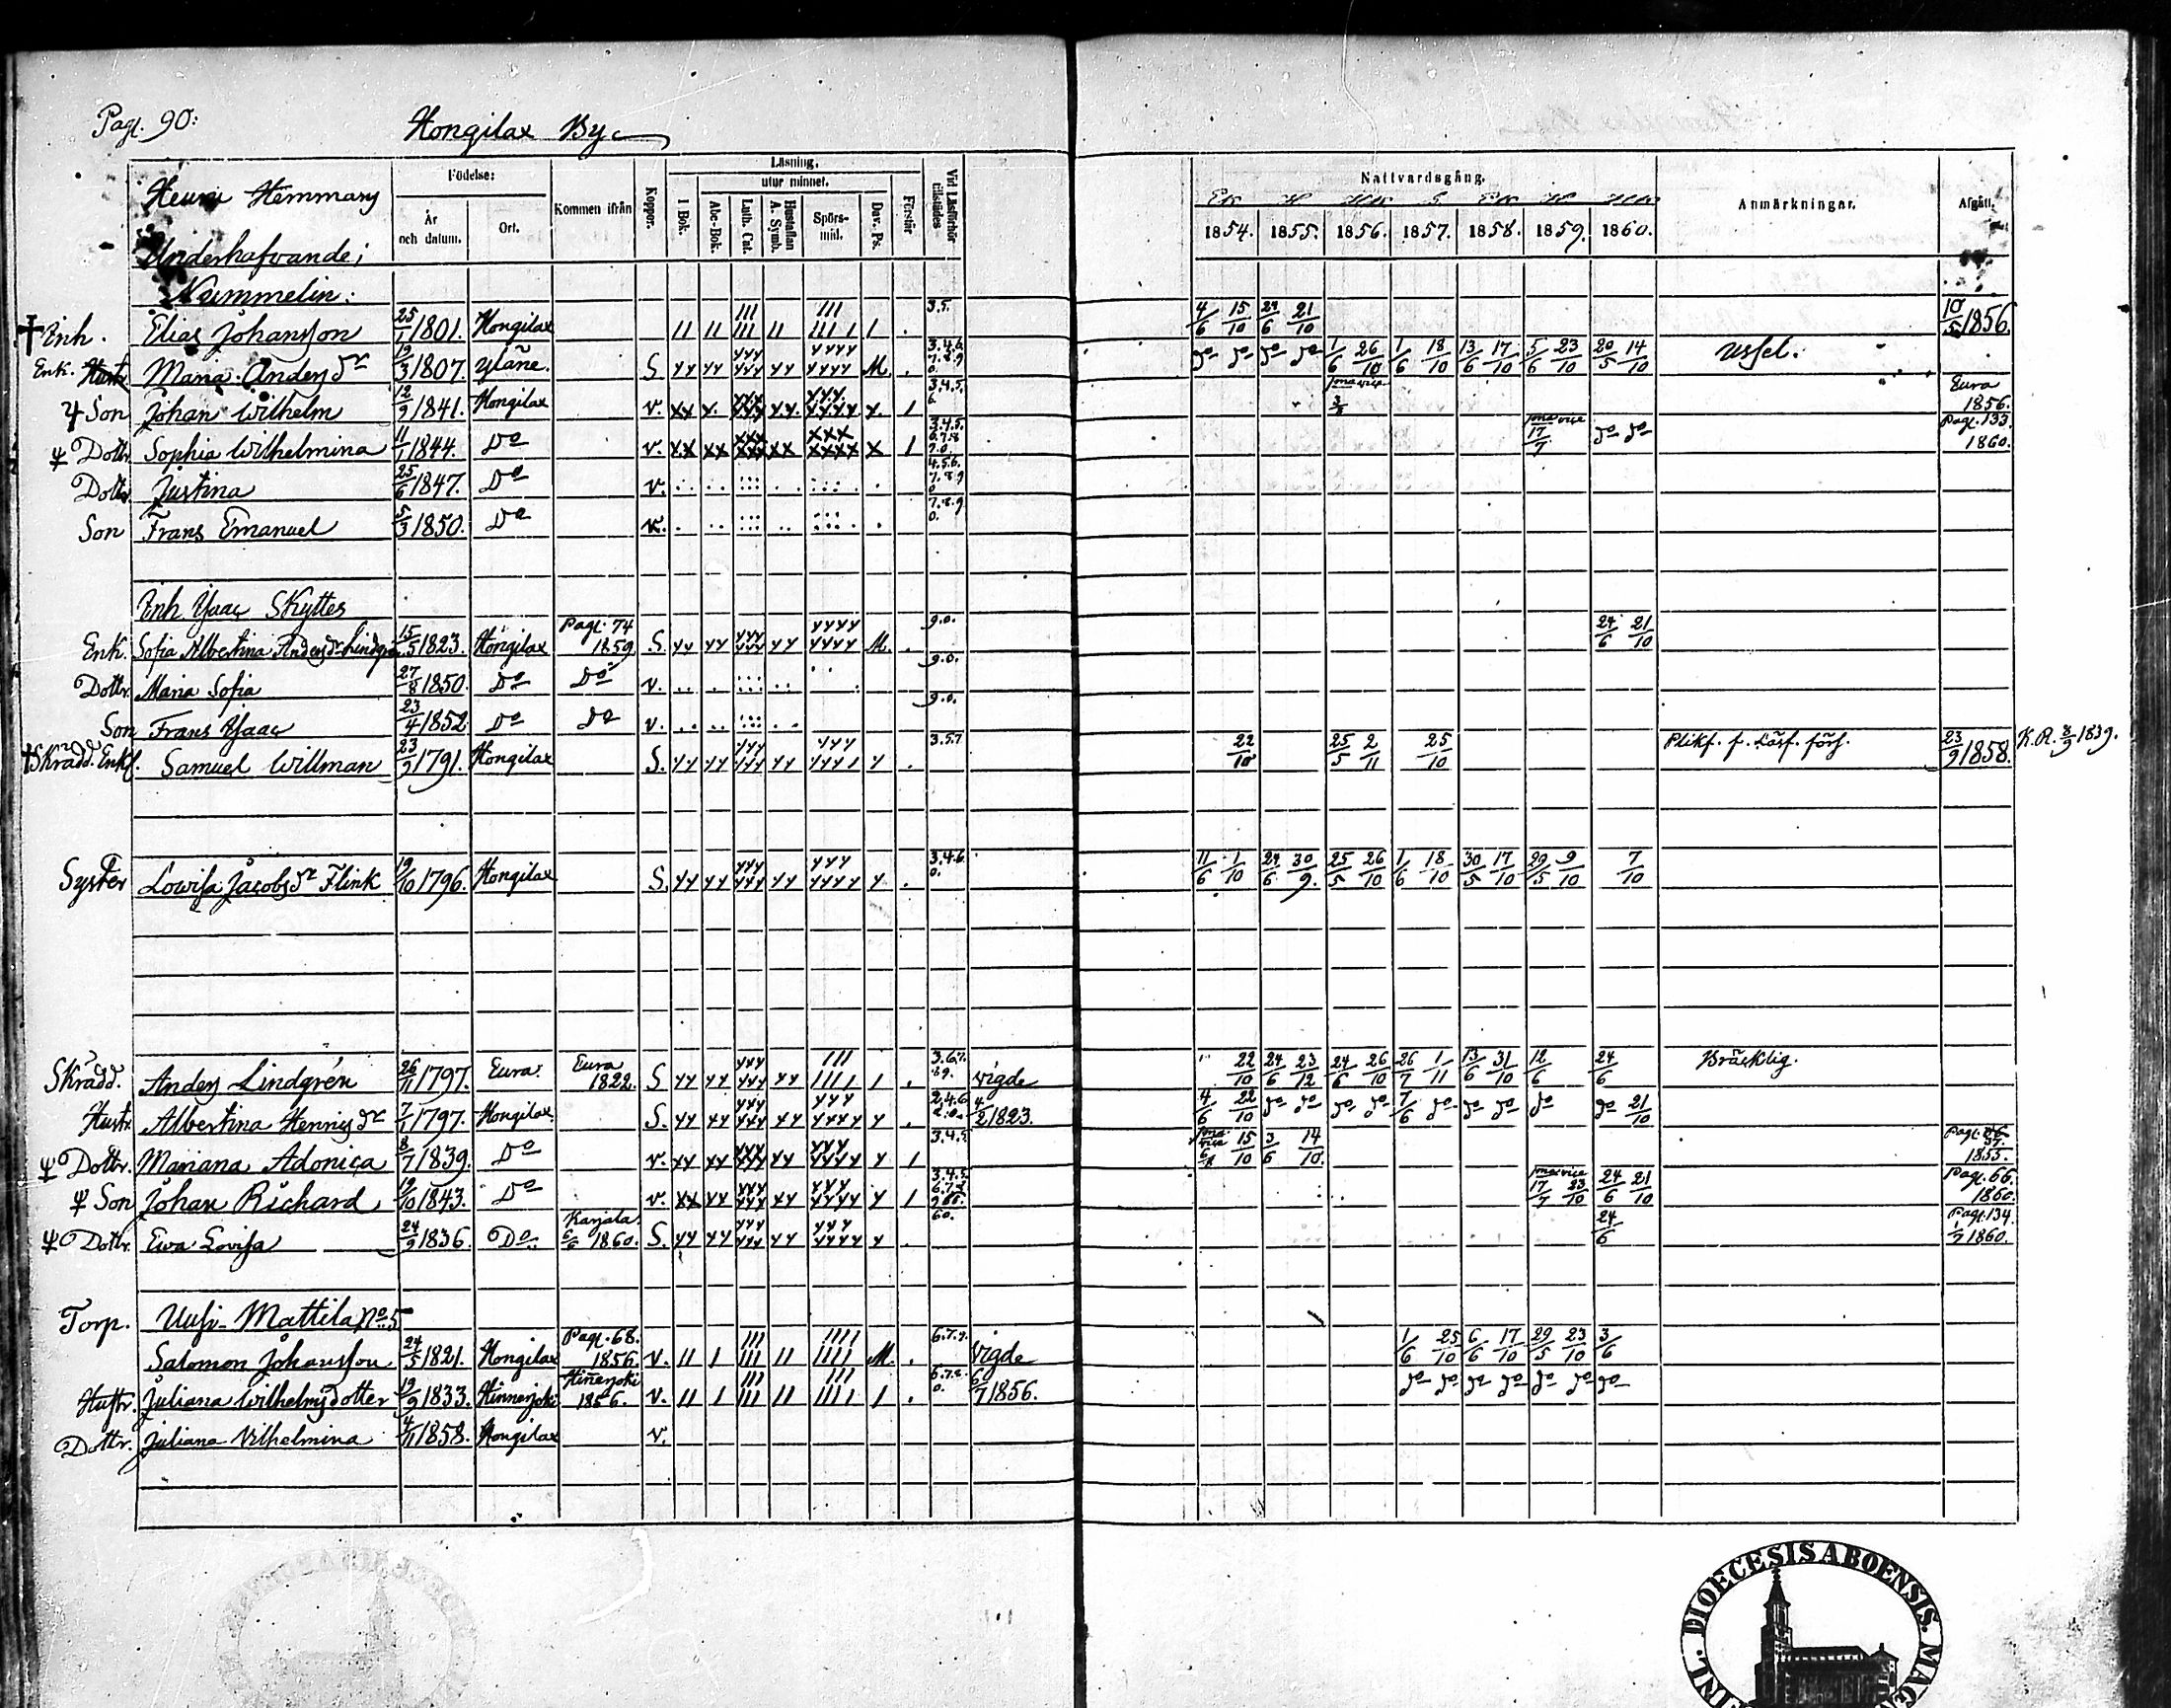 Pagl. 90:
Hongilax By
Födelse:
Kommen ifrån
Koppor.
Läsning,
utur minnet.
I Bok.
Abc-Bok.
Luth. Cat.
Hustaflan A. Symb.
Spörs-mål.
Dav. Ps.
Förstår
Vid Läsförhör tillstädes
År och datum.
Ort.
Nattvardsgång.
1854. 1855. 1856. 1857. 1858. 1859. 1860.
Anmärkningar.
Afgått.
Hemmans
Underhafvande;
Nummelin:
Inh. Elias Johansson 25/1 1801. Hongilax 3.5. 4/6 15/10 29/6 21/10 10/5 1856
Enk. Hustr. Maria Andersdr 19/3 1807. Yläne. S. M. 3.4.6. 7.8.9 0. do do do do 1/6 26/10 1/6 18/10 13/6 17/10 5/6 23/10 20/5 14/10 Ussel.
Son Johan Wilhelm 12/9 1841. Hongilax v. 3.4.5. 6. Eura 1856.
Dottr. Sophia Wilhelmina 11/1 1844. Do v. 3.4.5. 6.7.8 9.0. 17/7 do do Pagl. 133 1860.
Dottr. Justina 25/6 1847. Do v. 4.5.6. 7.8.9 0
Son Frans Emanuel 5/3 1850. Do v. 7.8.9 0.
Inh. Isaac Skyttes
Enk. Sofia Albertina Andersdr Lindgrén 15/5 1823. Hongilax Pagl. 74 1859 S. M. 9.0. 24/6 21/10
Dottr. Maria Sofia 27/8 1850. Do Do v. 9.0.
Son Frans Isaac 23/4 1852 Do Do v. 9.0.
Skrädd. Enkl. Samuel Willman 23/9 1791. Hongilax S. 3.5.7 22/10 25/5 2/11 25/10 Plikf. f. 23/9 1858. K.R. 8/9 1839.
Syster Lowisa Jacobsdr Flink 19/10 1796. Hongilax S. 3.4.6. 0. 11/6 1/10 24/6 30/9. 25/5 26/10 1/6 18/10 30/5 17/10 29/5 9/10 7/10
Skrädd. Anders Lindgrén 26/11 1797. Eura. Eura 1822. S 3.6.7. 8.9. vigde 22/10 24/6 23/12 24/6 26/10 26/7 1/11 13/6 31/10 12/6 24/6 Bräcklig.
Hustr. Albertina Henrisdr 7/1 1797. Hongilax. S. 2.4.6 4/2 1823. 4/6 22/10 do do do do 7/6 do do do do do 21/10
Dottr. Mariana Adonica 8/7 1839. Do v. 3.4.5. 15/10 3/6 14/10. 1855.
Son Johan Richard 19/10 1843. Do v. 3.4.5. 17/7 23/10 24/6 21/10 Pagl. 66. 1860.
Dottr. Ewa Lovisa 24/9 1836. Do Karjala 1860. S. 60. 24/6 Pagl. 134. 1860.
Torp. Uusi-Mattila No 5
Salomon Johansson 24/5 1821. Hongilax Pagl. 68. 1856. v. M. 6.7.9. vigde 1/6 25/10 6/6 17/10 29/5 23/10 3/6
Hustr. Juliana Wilhelmsdotter 19/9 1833. Hinnerjoki Hinerjoki 1856. v. 6.7.8. 0. 6/7 1856. do do do do do do do
Dottr. Juliana Vilhelmina 4/11 1858. Hongilax v.
DIOECESIS ABOENSIS.